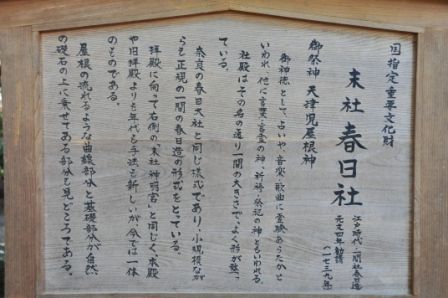 国指定重要文化財
末社 春日社
江戸時代 一間社春日造
元文四年勧請
(一七三九年)
御祭神 天津児屋根神
御神徳として、占いや、音楽、歌曲に霊験あらたかと
いわれ、他に言葉・言霊の神、祈祷・祭祀の神ともいわれる。
社殿はその名の通り一間の大きさで、よく形が整っ
ている。
奈良の春日大社と同じ様式であり、小規模なが
らも正規の一間の春日造の形式をとっている。
拝殿に向って右側の「末社神明宮」と同じく本殿
や旧拝殿よりも年代も手法も新しいが今では一体
のものである。
屋根の流れるような曲線部分と基礎部分が自然
の礎石の上に乗せてある部分も見どころである。